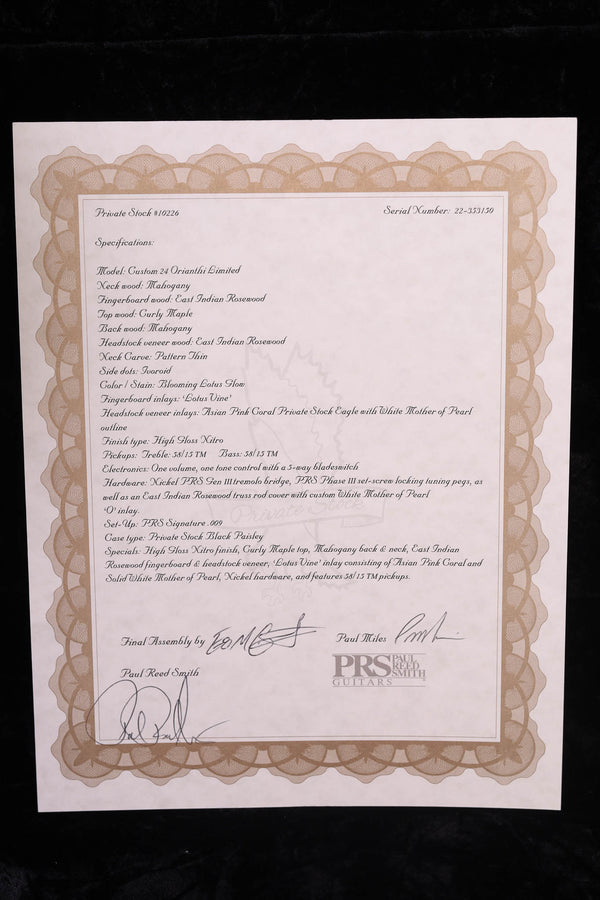 Private Stock #10226
Serial Number: 22-353150
Specifications:
Model: Custom 24 Orianthi Limited
Neck wood: Mahogany
Fingerboard wood: East Indian Rosewood
Top wood: Curly Maple
Back wood: Mahogany
Headstock veneer wood: East Indian Rosewood
Neck Carve: Pattern Thin
Side dots: Ivoroid
Color / Stain: Blooming Lotus Glow
Fingerboard inlays: 'Lotus Vine'
Headstock veneer inlays: Asian Pink Coral Private Stock Eagle with White Mother of Pearl
outline
Finish type: High Gloss Nitro
Pickups: Treble: 58/15 TM Bass: 58/15 TM
Electronics: One volume, one tone control with a 5-way bladeswitch
Hardware: Nickel PRS Gen III tremolo bridge, PRS Phase III set-screw locking tuning pegs, as
well as an East Indian Rosewood truss rod cover with custom White Mother of Pearl
'O' inlay.
Set-Up: PRS Signature .009
Case type: Private Stock Black Paisley
Specials: High Gloss Nitro finish, Curly Maple top, Mahogany back & neck, East Indian
Rosewood fingerboard & headstock veneer, 'Lotus Vine' inlay consisting of Asian Pink Coral and
Solid White Mother of Pearl, Nickel hardware, and features 58/15 TM pickups.
Private Stock
Final Assembly by
Paul Miles
Paul Reed Smith
PRS PAUL REED SMITH
GUITARS